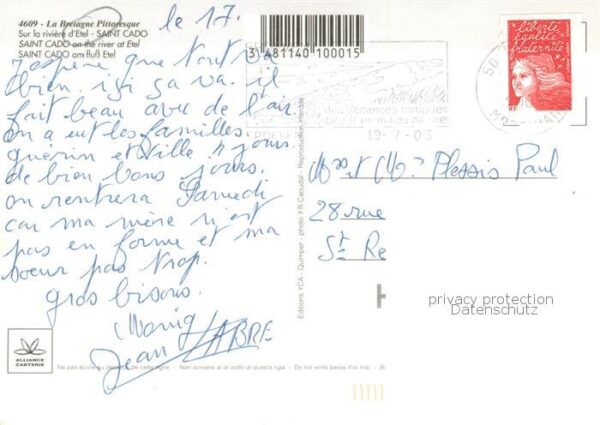 le 17.
4609 - La Bretagne Pittoresque
Sur la rivière d'Etel - SAINT CADO
SAINT CADO on the river at Etel
SAINT CADO am fluß Etel
j'espère que tout va
bien. ici ça va. il
fait beau avec de l'air
on a eut les familles
guérin et Ville 4 jours.
de bien bons jours.
on rentrera Samedi
car ma mère n'est
pas en forme et ma
soeur pas trop.
gros bisous.
Jean LABRE
3 481140 100015
19-7-03
56
liberté
égalité
fraternité
RF
Mr et Mme Plessis Paul
28 rue
St Re
privacy protection
Datenschutz
Editions YCA - Quimper - photo Y.R. Caoudal - Reproduction interdite
ALLIANCE
CARTERIE
Ne pas écrire au dessous de cette ligne - Non scrivere al di sotto di questa riga - Do not write below this line